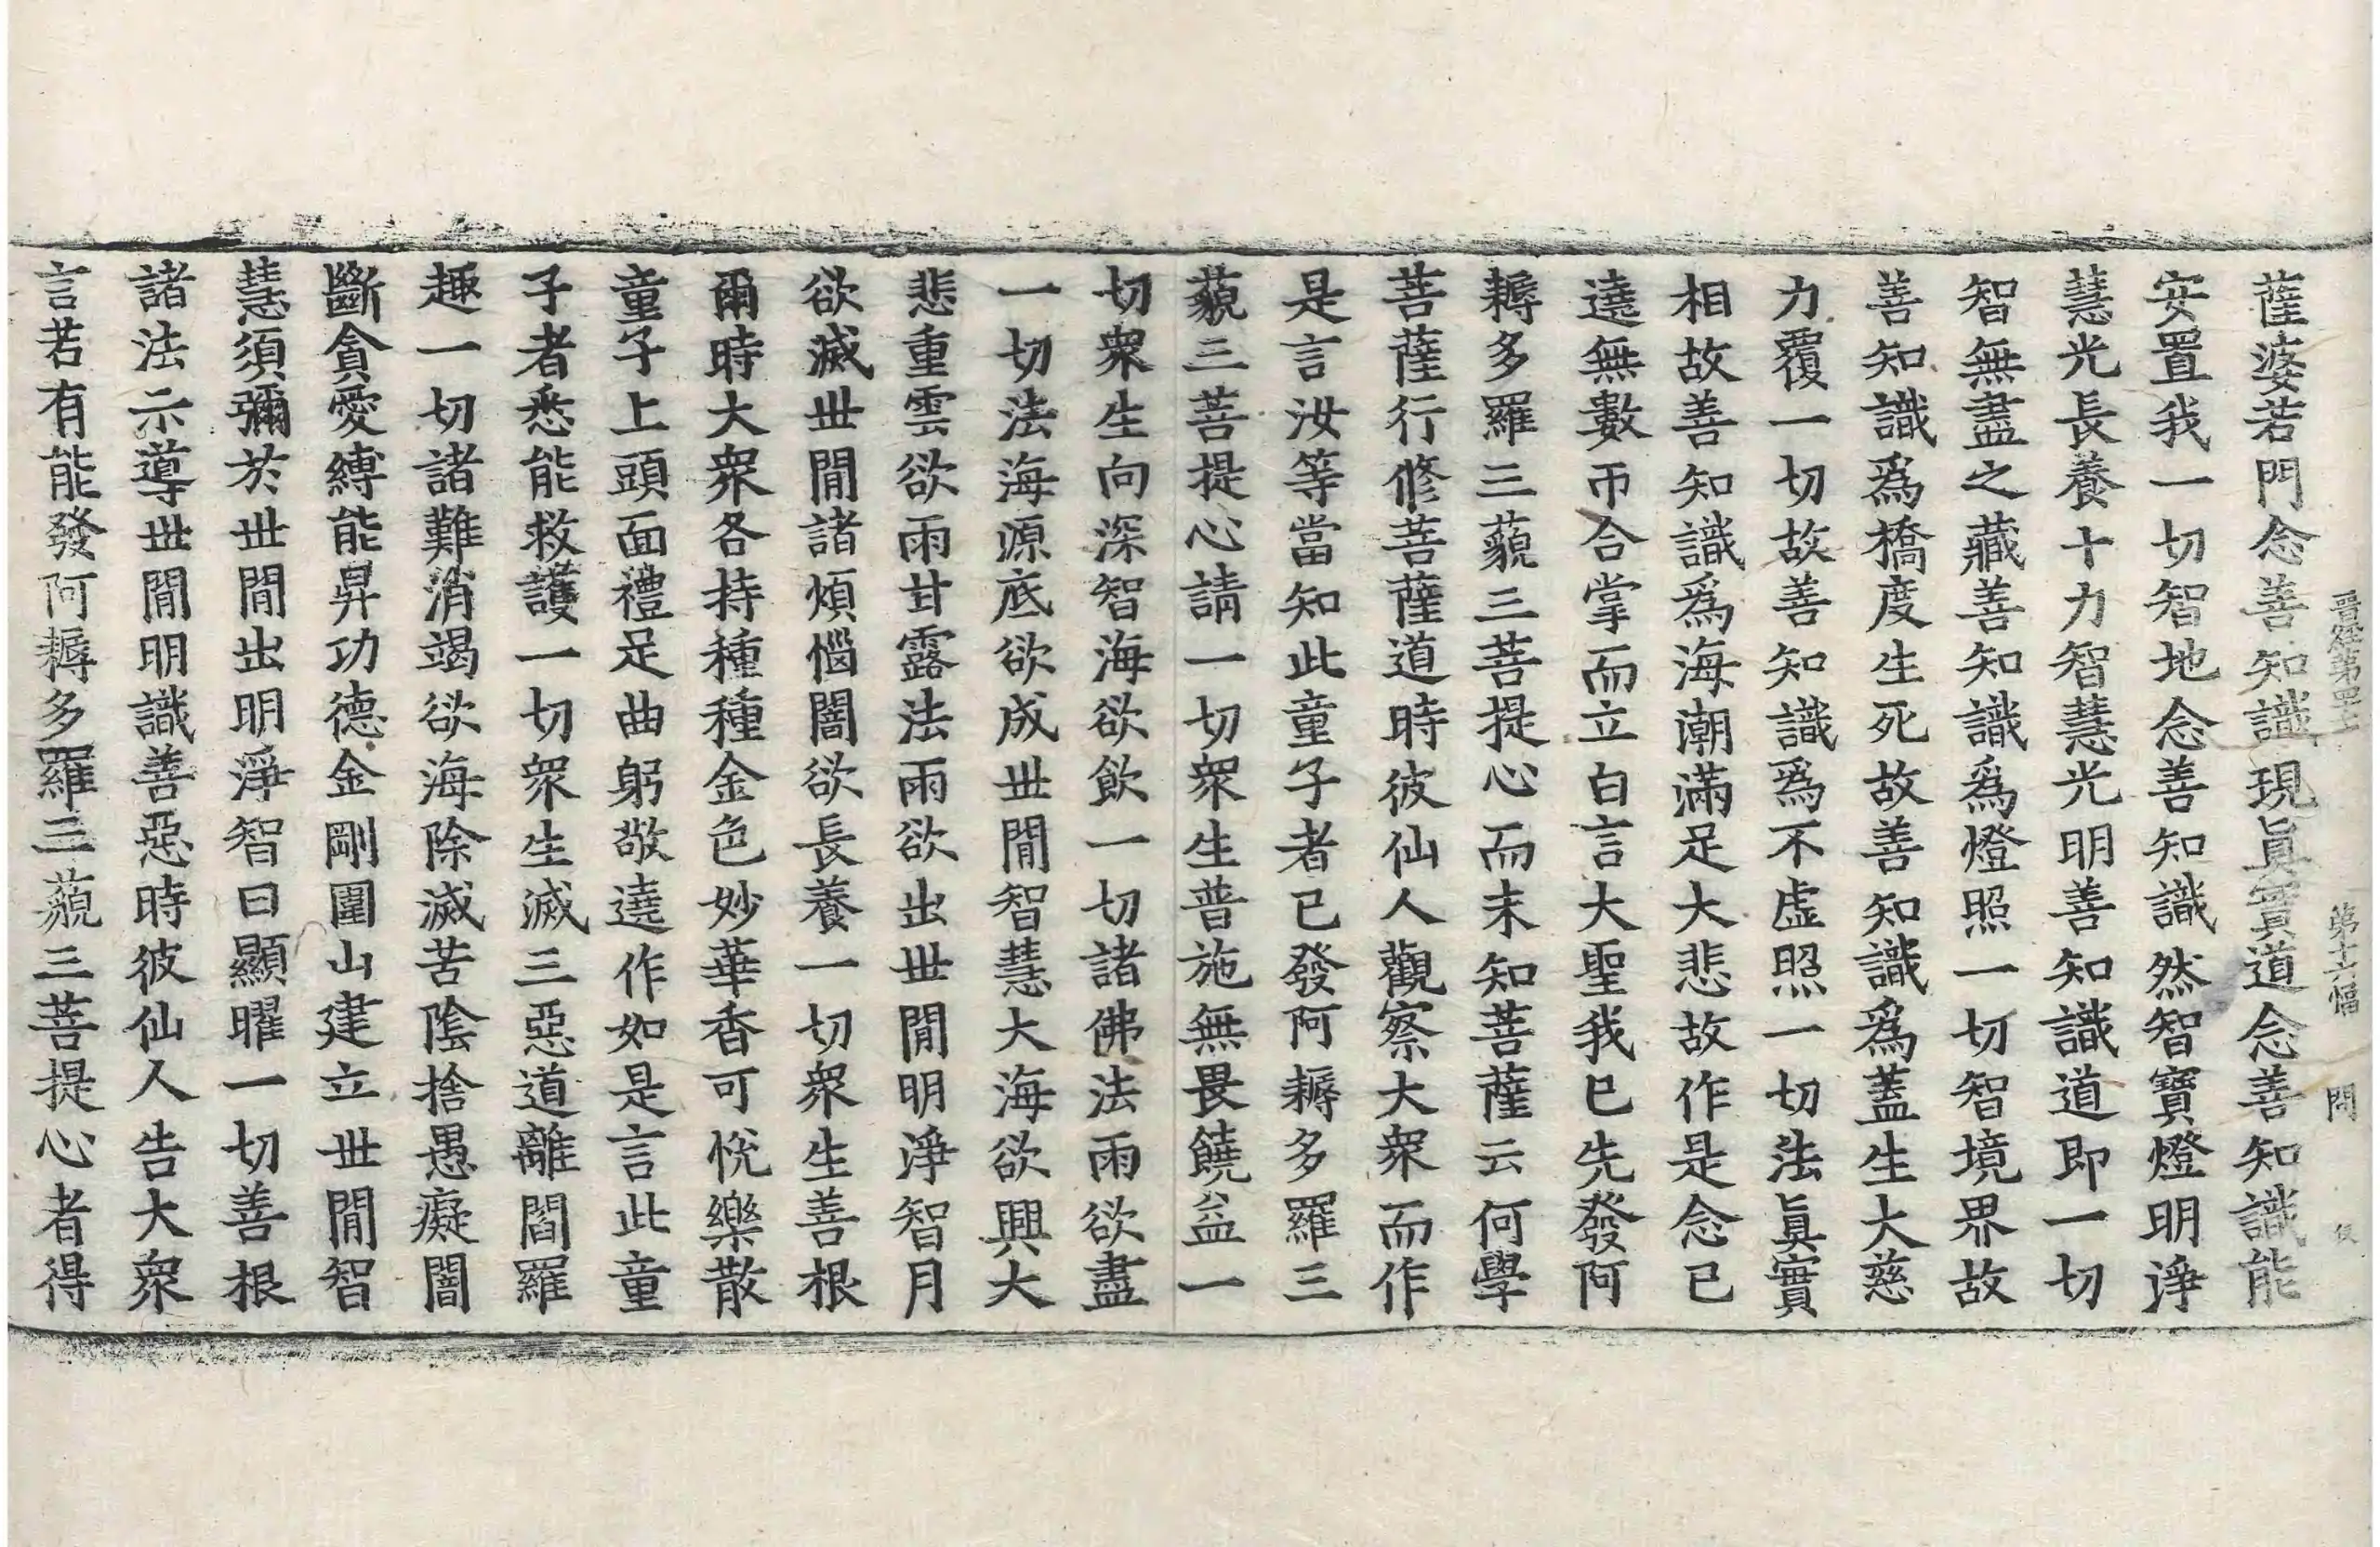 晉經第四十七 第十六幅 問 伎
薩婆若門念善知識現眞實道念善知識能
安置我一切智地念善知識然智寶燈明淨
慧光長養十力智慧光明善知識道即一切
智無盡之藏善知識爲燈照一切智境界故
善知識爲橋度生死故善知識爲蓋生大慈
力覆一切故善知識爲不虛照一切法眞實
相故善知識爲海潮滿足大悲故作是念已
遶無數帀合掌而立白言大聖我已先發阿
耨多羅三藐三菩提心而未知菩薩云何學
菩薩行修菩薩道時彼仙人觀察大衆而作
是言汝等當知此童子者已發阿耨多羅三
藐三菩提心請一切衆生普施無畏饒益一
切衆生向深智海欲飲一切諸佛法雨欲盡
一切法海源底欲成世閒智慧大海欲興大
悲重雲欲雨甘露法雨欲出世閒明淨智月
欲滅世閒諸煩惱闇欲長養一切衆生善根
爾時大衆各持種種金色妙華香可悅樂散
童子上頭面禮足曲躬敬遶作如是言此童
子者悉能救護一切衆生滅三惡道離閻羅
趣一切諸難消竭欲海除滅苦陰捨愚癡闇
斷貪愛縛能昇功德金剛圍山建立世閒智
慧須彌於世閒出明淨智日顯曜一切善根
諸法示導世閒明識善惡時彼仙人告大衆
言若有能發阿耨多羅三藐三菩提心者得